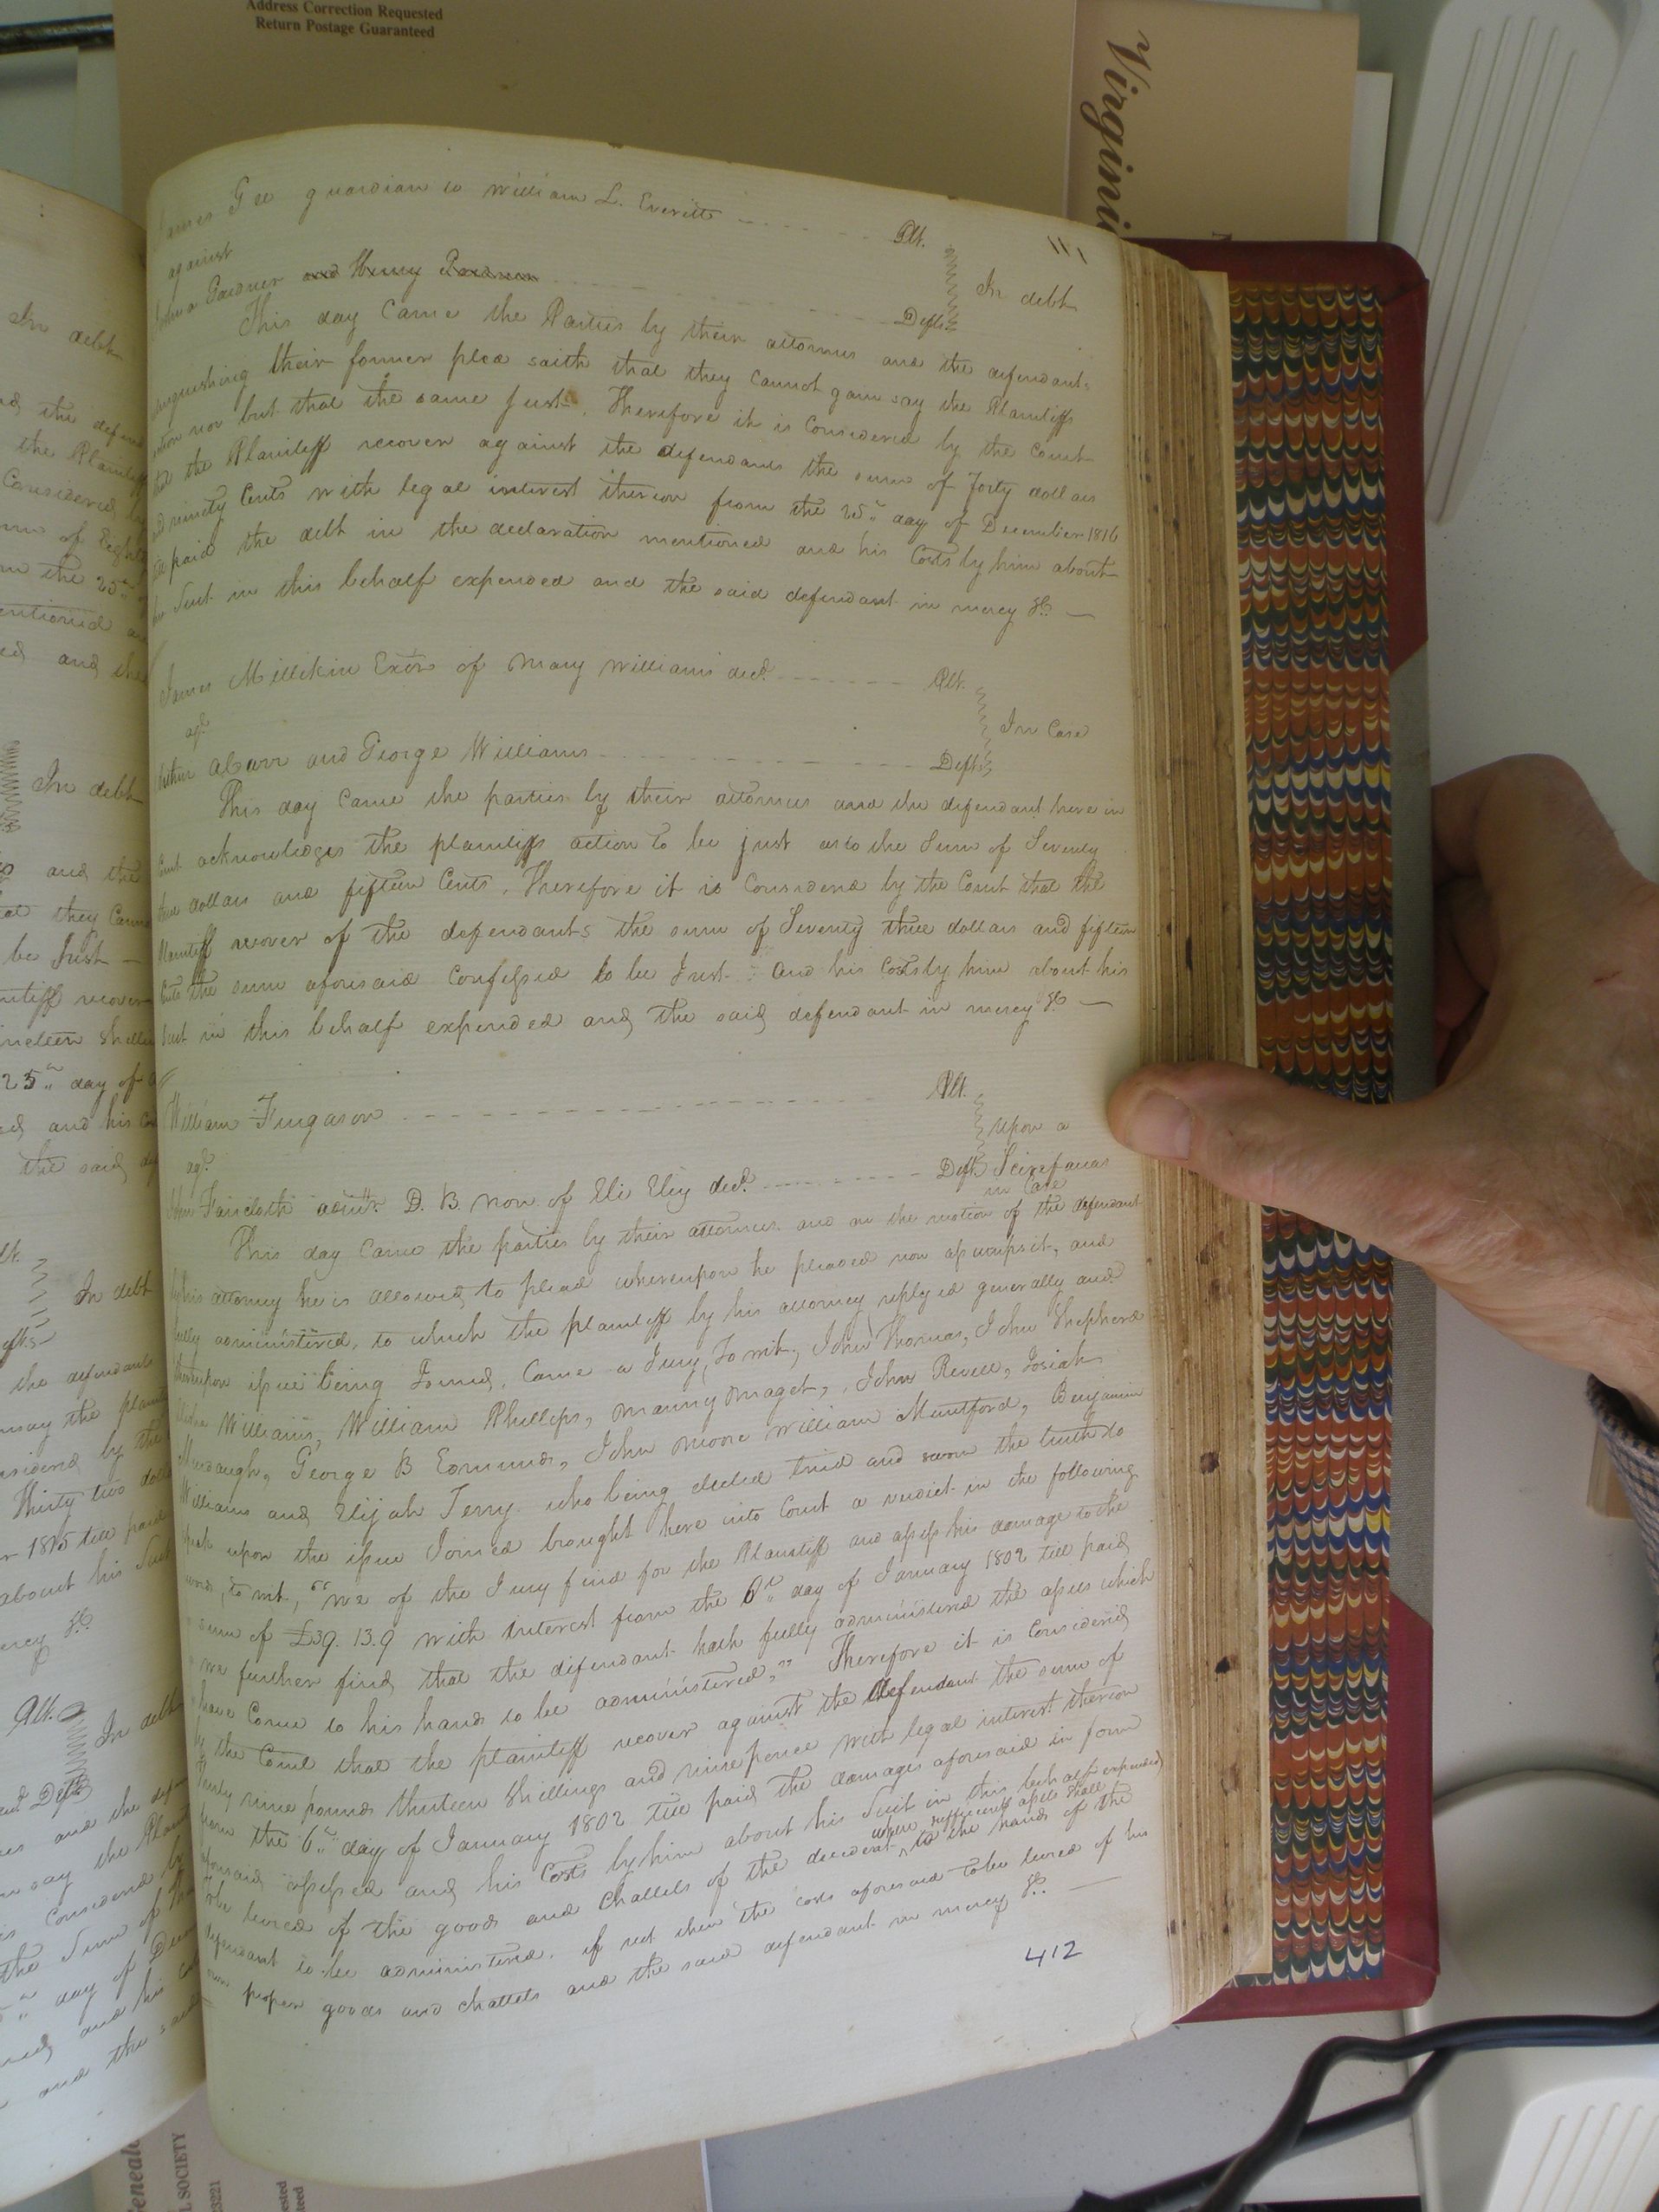 Address Correction Requested
Return Postage Guaranteed
Virgini
111
James Gee guardian to William L. Everitt Plt.
against In debt
Gardner and Henry Gardner Defts.
This day Came the Parties by their attornies and the defendants
their former plea saith that they Cannot gain say the Plaintiffs
nor but that the same Just. Therefore it is Considered by the Court
that the Plaintiff recover against the defendants the sum of Forty dollars
ninety Cents with legal interest thereon from the 25th day of December 1816
till paid the debt in the declaration mentioned and his Costs by him about
his Suit in this behalf expended and the said defendant in mercy &c
James Millikin Exor of Mary Williams decd. Plt.
agt. In Case
and George Williams Defts.
This day Came the parties by their attornies and the defendant here in
Court acknowledges the plaintiffs action to be just as to the Sum of Seventy
three dollars and fifteen Cents. Therefore it is Considered by the Court that the
Plaintiff recover of the defendants the sum of Seventy three dollars and fifteen
Cents the sum aforesaid Confessed to be Just and his Costs by him about his
Suit in this behalf expended and the said defendant in mercy &c
William Furgason Plt.
agt. upon a
John Faircloth admr. D. B. non of Eli Eley decd. Deft. Scirefacias
in Case
This day Came the parties by their attornies and on the motion of the defendant
by his attorney he is allowed to plead whereupon he pleaded non assumpsit, and
fully administered, to which the plaintiff by his attorney replyed generally and
thereupon issue being Joined, Came a Jury, To wit, John Thomas, John Shepherd
Williams, William Phillips, Manny Maget, John Revell, Josiah
Murdaugh, George B Edmunds, John Moore William Muntford, Benjamin
Williams and Elijah Terry who being elected tried and sworn the truth to
speak upon the issue Joined brought here into Court a verdict in the following
words, to wit, "We of the Jury find for the Plaintiff and assess his damage to the
sum of £39. 13. 9 with interest from the 6th day of January 1802 till paid
we further find that the defendant hath fully administered the assets which
have Come to his hands to be administered," Therefore it is Considered
by the Court that the plaintiff recover against the defendant the sum of
Thirty nine pounds thirteen Shillings and nine pence with legal interest thereon
from the 6th day of January 1802 till paid the damages aforesaid in form
aforesaid assessed and his Costs by him about his Suit in this behalf expended
where sufficient assets shall
To be levied of the goods and Chattels of the decedent to the hands of the
defendant to be administered. if not then the costs aforesaid to be levied of his
own proper goods and chattels and the said defendant in mercy &c.
412
In debt
the Plaintiff
Considered by
In debt
and the
be Just
25th day of
and his
the said
In debt
the defendant
Thirty two
1815 till paid
about his Suit
mercy &c
Plt. In debt
SOCIETY
23221